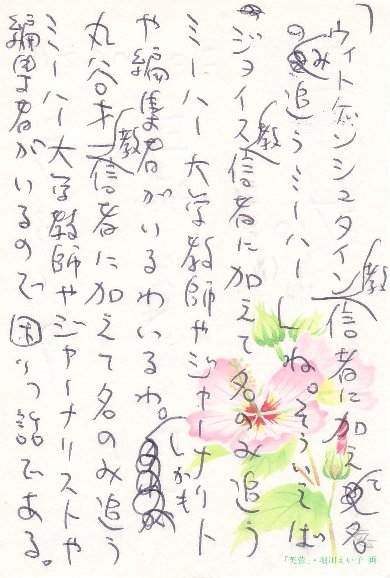 ウィトゲンシュタイン教信者に加えて名
のみ追うミーハーしね。そういえば
ジョイス教信者に加えて名のみ追う
ミーハー大学教師やジャーナリト
や編集者がいるわいるわ。しかも
丸谷才一教信者に加えて名のみ追う
ミーハー大学教師やジャーナリストや
編集者がいるので困りつ話である。
「芙蓉」・堀川えい子 画